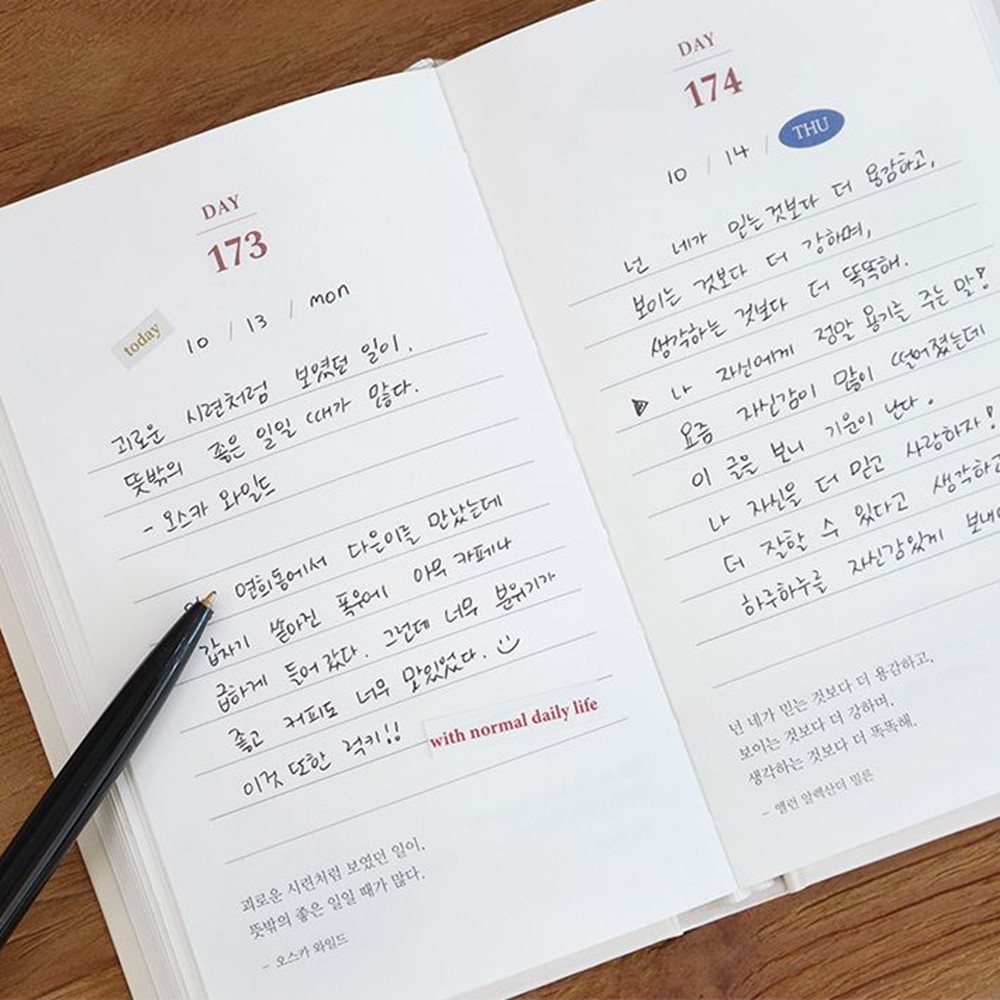 DAY
173
today 10 / 13 / mon
괴로운 시련처럼 보였던 일이.
뜻밖의 좋은 일일 때가 많다.
- 오스카 와일드
연희동에서 다은이를 만났는데
갑자기 쏟아진 폭우에 아무 카페나
급하게 들어갔다. 그런데 너무 분위기가
좋고 커피도 너무 맛있었다.
이것 또한 럭키!!
with normal daily life
괴로운 시련처럼 보였던 일이,
뜻밖의 좋은 일일 때가 많다.
- 오스카 와일드
DAY
174
10 / 14 / THU
넌 네가 믿는 것보다 더 용감하고,
보이는 것보다 더 강하며,
생각하는 것보다 더 똑똑해.
나 자신에게 정말 용기를 주는 말!
요즘 자신감이 많이 떨어졌는데
이 글을 보니 기운이 난다.
나 자신을 더 믿고 사랑하자!
더 잘할 수 있다고 생각하고
하루하루를 자신감있게
넌 네가 믿는 것보다 더 용감하고,
보이는 것보다 더 강하며,
생각하는 것보다 더 똑똑해.
- 앨런 알렉산더 밀른